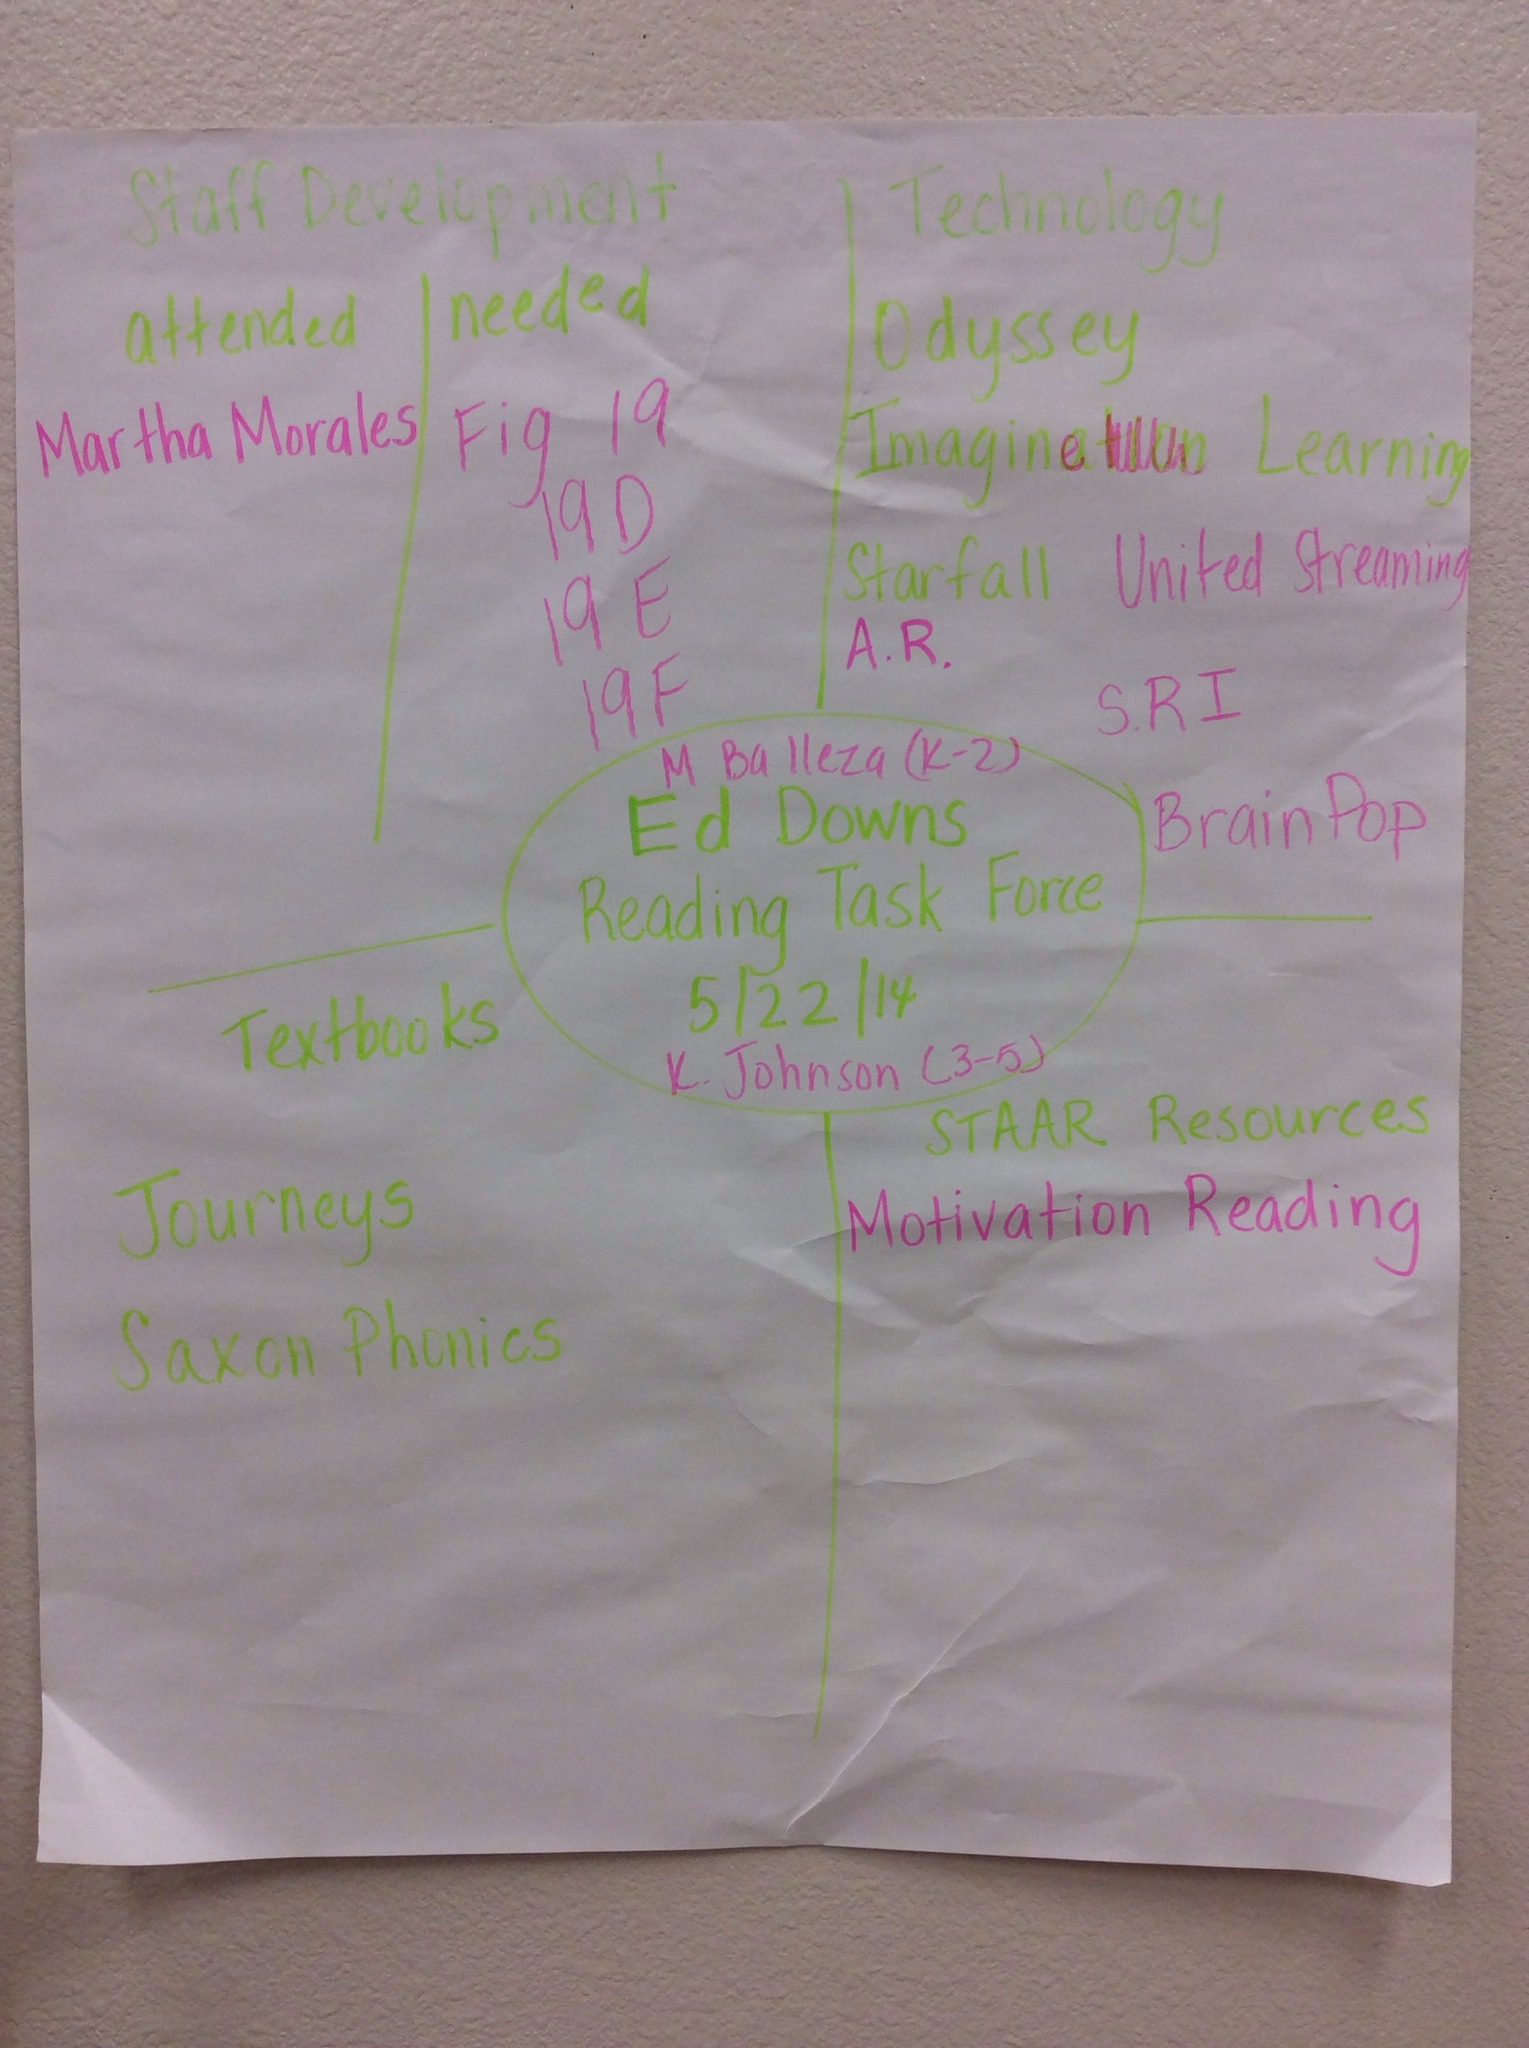 Staff Development
attended
needed
Martha Morales
Fig 19
19D
19E
19F
Technology
Odyssey
Imagine Learning
Starfall United Streaming
A.R.
S.R.I
BrainPop
M Balleza (K-2)
Ed Downs
Reading Task Force
5/22/14
K. Johnson (3-5)
Textbooks
Journeys
Saxon Phonics
STAAR Resources
Motivation Reading